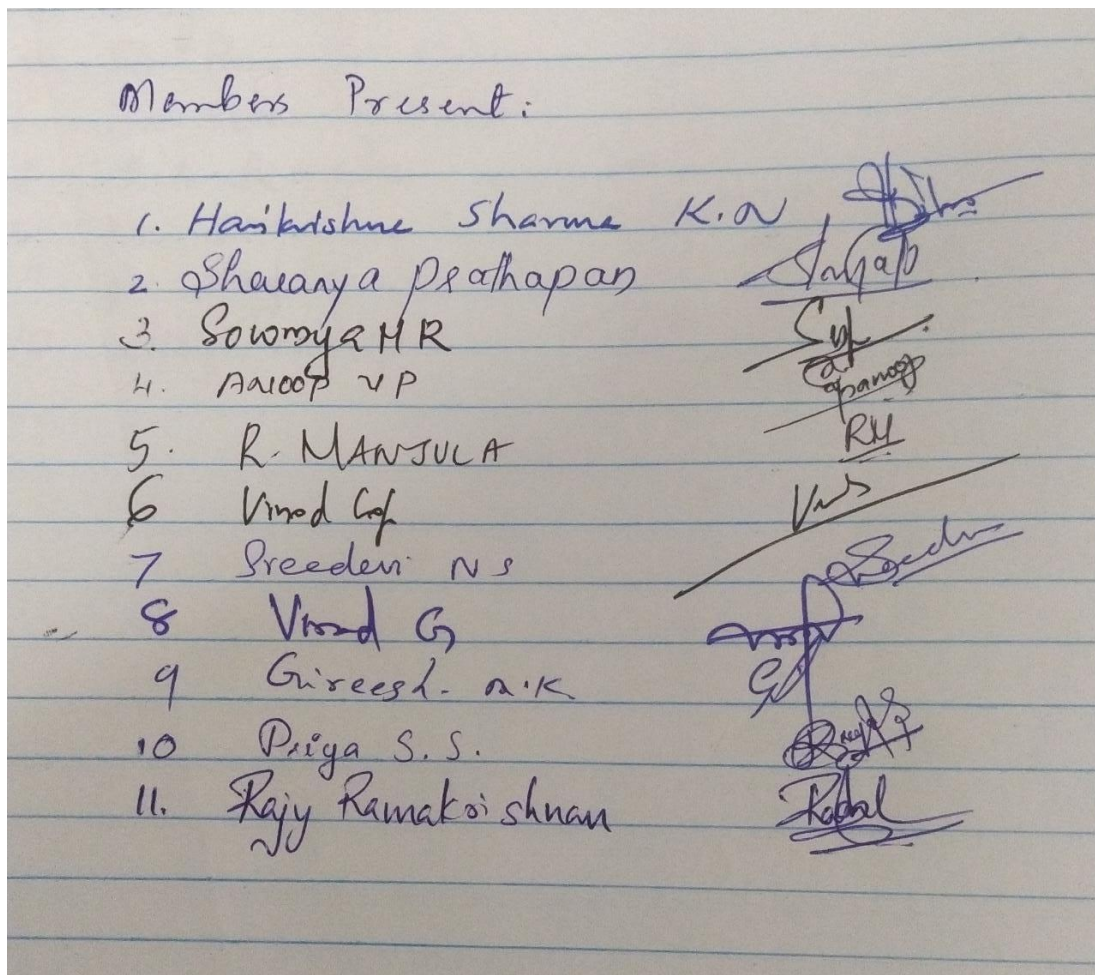 Members Present:
1. Harikrishna Sharma K.N
2. Sharanya Prathapan
3. Sowmya M R
4. Anoop VP anoop
5. R. MANJULA RM
6 Vinod
7 Sreedevi NS
8 Vinod G
9 Gireesh. n.k
10 Priya S.S.
11. Rajy Ramakrishnan